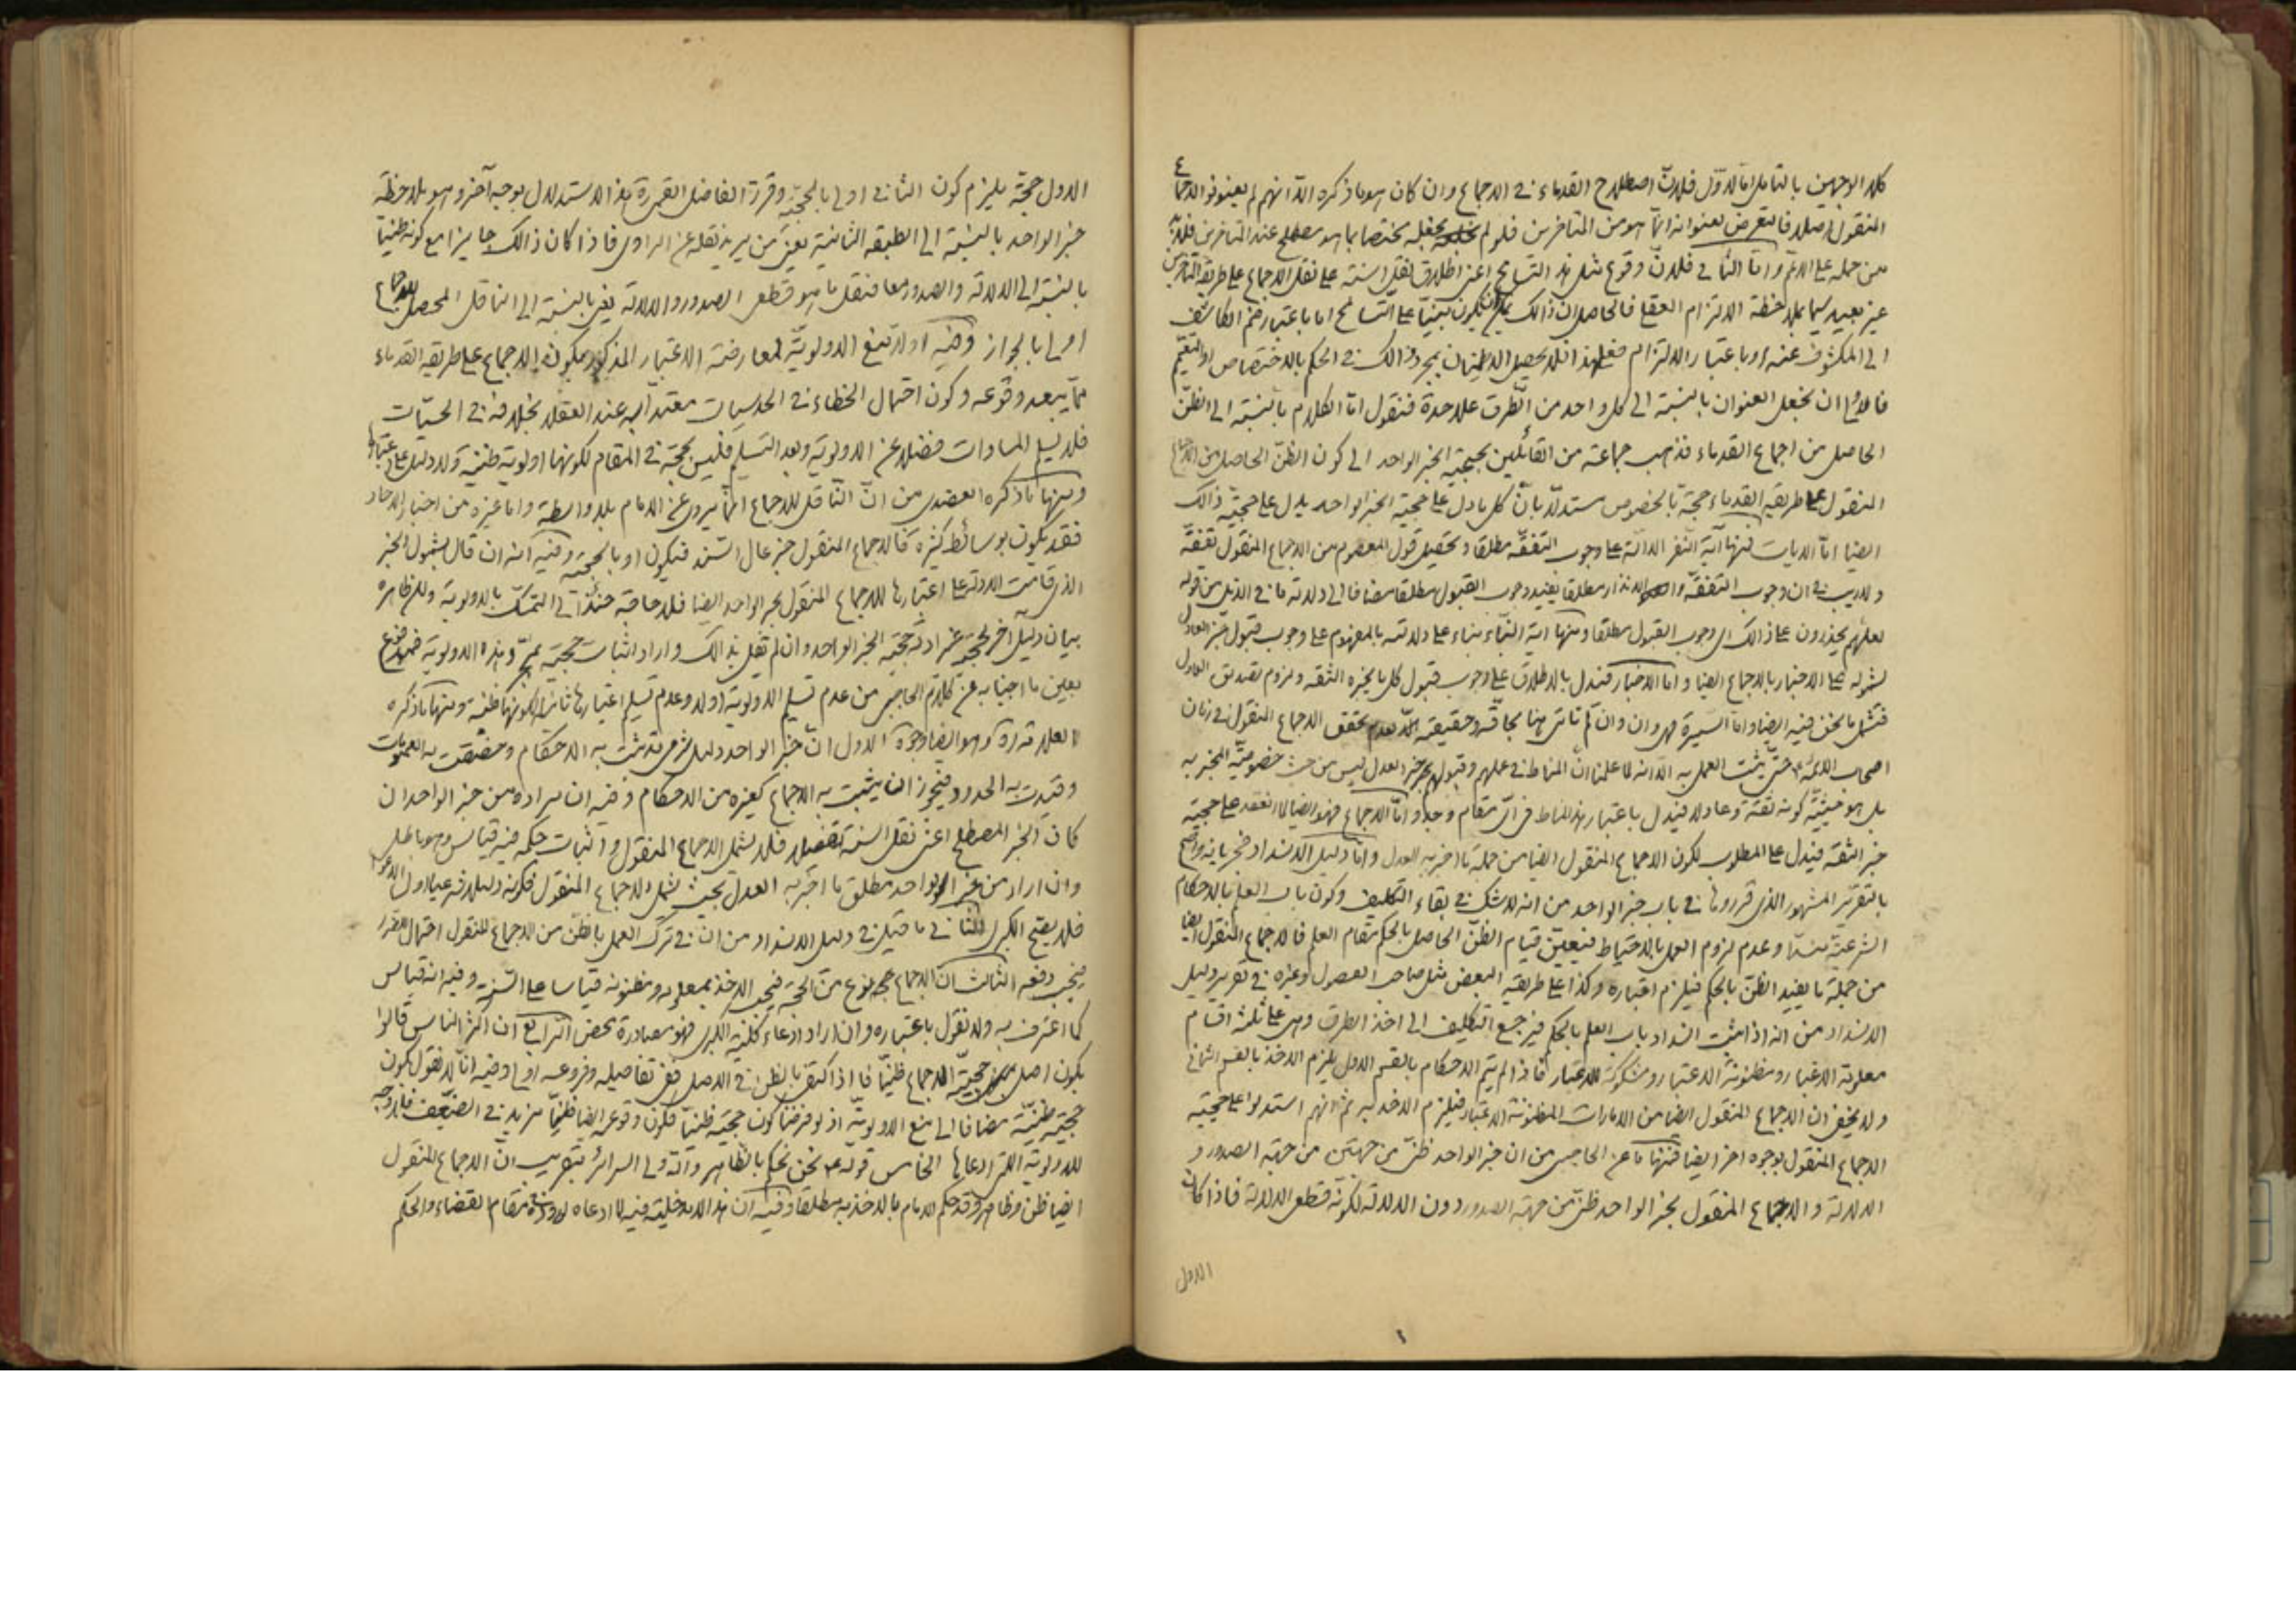 كلا الوجهين بالتامل اما الاوّل فلانّ اصطلاح القدماء في الاجماع وان كان هو ما ذكره الّا انهم لم يعنونوا الاجماع
المنقول اصلا فالتعرض لعنوانه انّما هو من المتاخرين فلو لم نجعله مختصا بما هو مصطلح عند المتاخرين فلا بد
من حمله على الاعم وامّا الثاني فلانّ وقوع مثل هذا التسامح اعني اطلاق نقل السنة على نقل الاجماع على طريقة المتاخرين
غير بعيد سيما بملاحظة الالتزام العقلي فالحاصل ان ذالك يمكن ان يكون مبنيّا على التسامح اما باعتبار ضم الكاشف
الى المكشوف عنه او باعتبار الالتزام فعلى هذا فلا يحصل الاطمينان بمجرد ذالك في الحكم بالاختصاص او التعميم
فالاولى ان نجعل العنوان بالنسبة الى كل واحد من الطرق على حدة فنقول امّا الكلام بالنسبة الى الظنّ
الحاصل من اجماع القدماء فذهب جماعة من القائلين بحجية الخبر الواحد الى كون الظنّ الحاصل من الاجماع
المنقول على طريقة القدماء حجة بالخصوص مستدلّا بانّ كل ما دل على حجية الخبر الواحد يدل على حجيّة ذالك
ايضا امّا الايات فمنها آية النفر الدالّة على وجوب التفقّه مطلقا وتحصيل قول المعصوم من الاجماع المنقول تفقّه
ولا ريب في ان وجوب التفقّه والانذار مطلقا يفيد وجوب القبول مطلقا مضافا الى دلالة ما في الذيل من قوله
لعلهم يحذرون على ذالك اي وجوب القبول مطلقا ومنها اية النباء بناء على دلالته بالمفهوم على وجوب قبول خبر العادل
لشموله على الاخبار بالاجماع ايضا وامّا الاخبار فتدل بالاطلاق على وجوب قبول كل ما يخبره الثقه ولزوم تصديق العادل
فتشمل ما نحن فيه ايضا وامّا السيرة فهي وان لم تاتى هنا بحاقّه وحقيقته لعدم تحقق الاجماع المنقول في زمان
اصحاب الائمّة حتى يثبت العمل به الّا انه لما علمنا انّ المناط في عملهم وقبولهم خبر العدل ليس من حيث خصوصيّة المخبر به
بل هو حيثيّة كونه ثقة وعادلا فيدل باعتبار هذا المناط في ايّ مقام وجد وامّا الاجماع فهو ايضا لما انعقد على حجية
خبر الثقه فيدل على المطلوب لكون الاجماع المنقول ايضا من جملة ما اخبر به العدل وامّا دليل الانسداد فجريانه واضح
بالتقرير المشهور الذي قرروها في باب خبر الواحد من انه لا شك في بقاء التكليف وكون باب العلم بالاحكام
الشرعيّة منسدّا وعدم لزوم العمل بالاحتياط فيتعيّن قيام الظنّ الحاصل بالحكم مقام العلم فالاجماع المنقول ايضا
من جملة ما يفيد الظنّ بالحكم فيلزم اعتباره وكذا على طريقة البعض مثل صاحب الفصول وغيره في تقرير دليل
الانسداد من انه اذا ثبت انسداد باب العلم بالحكم فيرجع التكليف الى اخذ الطرق وهي على ثلثة اقسام
معلومة الاعتبار ومظنونة الاعتبار ومشكوكة الاعتبار فاذا لم يتم الاحكام بالقسم الاول يلزم الاخذ بالقسم الثاني
ولا يخفى ان الاجماع المنقول ايضا من الامارات المظنونة الاعتبار فيلزم الاخذ به ثم انهم استدلوا على حجية
الاجماع المنقول بوجوه اخر ايضا فمنها ما عن الحاجبي من ان خبر الواحد ظنّي من جهتين من جهة الصدور و
الدلالة والاجماع المنقول بخبر الواحد ظنّي من جهة الصدور دون الدلالة لكونه قطعي الدلالة فاذا كان
الاول
الاول حجة يلزم كون الثاني اولى بالحجيّة وقرر الفاضل القمي هذا الاستدلال بوجه آخر وهو ملاحظة
خبر الواحد بالنسبة الى الطبقه الثانية يعني من يريد نقله عن الراوي فاذا كان ذالك جايزا مع كونه ظنيّا
بالنسبة الى الدلالة والصدور معا فنقل ما هو قطعي الصدور والدلالة يعني بالنسبة الى الناقل المحصل للاجماع
اولى بالجواز وفيه اولا نمنع الاولويّة لمعارضة الاعتبار المذكور بكون الاجماع على طريقة القدماء
ممّا يبعد وقوعه وكون احتمال الخطاء في الحدسيات معتدا به عند العقلاء بخلافه في الحسّيات
فلا نسلم المساوات فضلا عن الاولوية وبعد التسليم فليس بحجة في المقام لكونها اولوية ظنية ولا دليل على اعتبارها
ومنها ما ذكره العضدي من انّ النّاقل للاجماع انّما يروي عن الامام بلا واسطة واما غيره من اخبار الاحاد
فقد يكون بوسائط كثيرة فالاجماع المنقول خبر عال السّند فيكون اولى بالحجية وفيه انه ان قال بشمول الخبر
الذي قامت الادلة على اعتبارها للاجماع المنقول بخبر الواحد ايضا فلا حاجة حينئذ الى التمسّك بالاولوية وللزم ظاهره
بيان دليل آخر لحجيته غير ادلّة حجّية الخبر الواحد وان لم نقل بذالك واراد اثبات حجيته بهذه الاولوية فمدفوع
بعين ما اجبنا به عن كلام الحاجبي من عدم تسليم الاولوية اولا وعدم تسليم اعتبارها ثانيا لكونها ظنية ومنها ما ذكره
العلامة ره وهو ايضا وجوه الاول انّ خبر الواحد دليل شرعي قد يثبت به الاحكام وخصّصت به العمومات
وقيّدت به الحدود فيجوز ان يثبت به الاجماع كغيره من الاحكام وفيه ان مراده من خبر الواحد ان
كان الخبر المصطلح اعني نقل السنة تفصيلا فلا يشمل الاجماع المنقول واثبات حكمه فيه قياس وهو باطل
وان اراد من خبر الواحد مطلق ما اخبر به العدل بحيث يشمل الاجماع المنقول فكونه دليلا شرعيا اول الدعوى
فلا يفتح الكبرى الثاني ما قيل في دليل الانسداد من ان في ترك العمل بالظنّ من الاجماع المنقول احتمال الضرر
فيجب دفعه الثالث انّ الاجماع نوع من الحجة فيجب الاخذ بمعلومه ومظنونه قياسا على السّنة وفيه انه قياس
كما اعترف به ولا نقول باعتباره وان اراد ادعاء كلية الكبرى فهو مصادرة محض الرابع ان اكثر الناس قالوا
بكون اصل حجيّة الاجماع ظنيّا فاذا اكتفى بالظن في الاصل ففي تفاصيله وفروعه اولى وفيه انا لا نقول بكون
حجيته ظنيّة مضافا الى منع الاولويّة اذ لو فرضنا كون حجيته ظنيّا فكون وقوعه ايضا ظنيّا مزيد في الضعف فلا وجه
للاولوية التي ادعاها الخامس قوله ص نحن نحكم بالظاهر والله ولى السرائر بتقريب انّ الاجماع المنقول
ايضا ظن وظاهر وقد حكم الامام بالاخذ به مطلقا وفيه ان هذا لا مدخلية فيه لما ادعاه لوروده في مقام القضاء والحكم